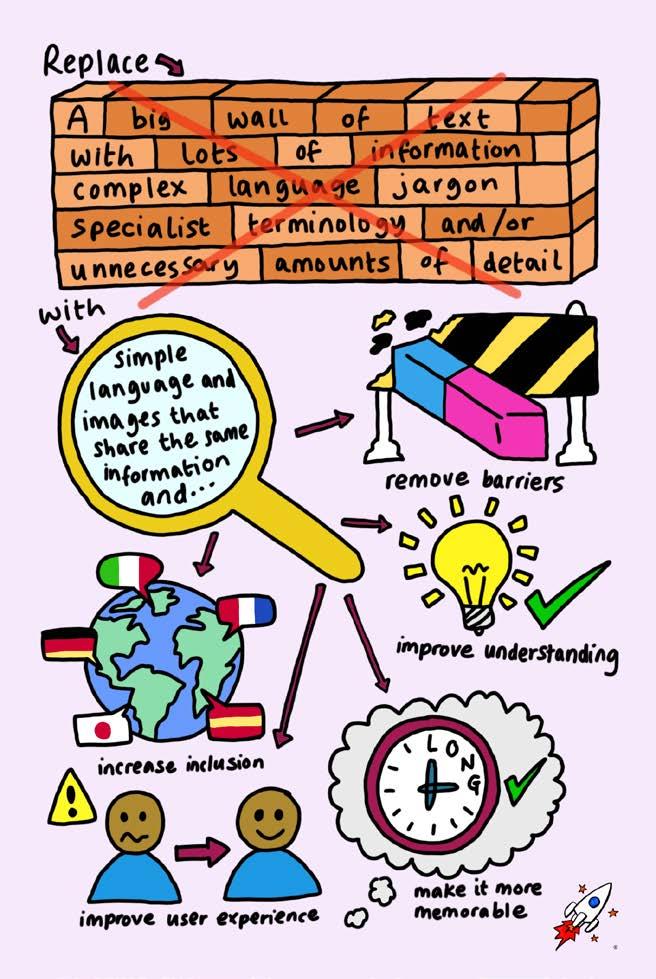 Replace
A big wall of text
with Lots of information
complex language jargon
specialist terminology and/or
unnecessary amounts of detail
with
simple
language and
images that
share the same
information
and...
remove barriers
improve understanding
increase inclusion
LONG
!
improve user experience
make it more
memorable